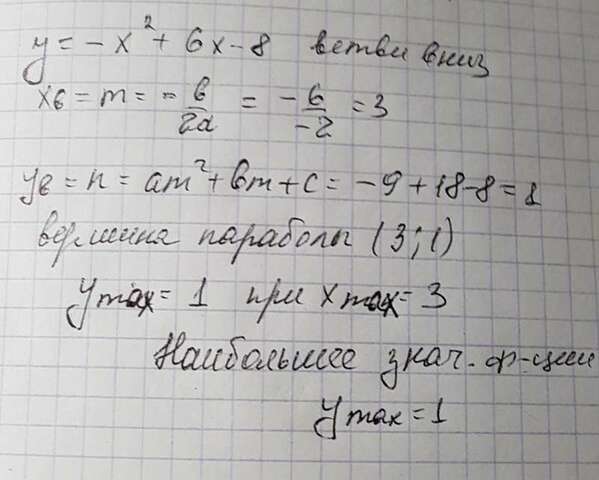 y = -x² + 6x - 8 ветви вниз
xв = m = -в/2a = -6/-2 = 3
yв = n = am² + вm + c = -9 + 18 - 8 = 1
вершина параболы (3; 1)
y max = 1 при x max = 3
Наибольшее знач. ф-ции
y max = 1